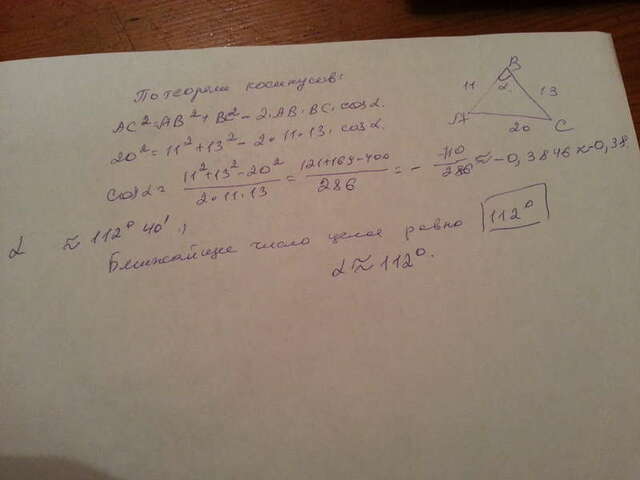 По теореме косинусов:
AC² = AB² + BC² - 2·AB·BC·cos α.
20² = 11² + 13² - 2·11·13·cos α.
cos α = (11² + 13² - 20²)/(2·11·13) = (121 + 169 - 400)/286 = - 110/286 ≈ -0,3846 ≈ -0,38.
α ≈ 112° 40' ;
Ближайшее число целое равно 112°
α ≈ 112°.
B
11 α 13
A
20 C